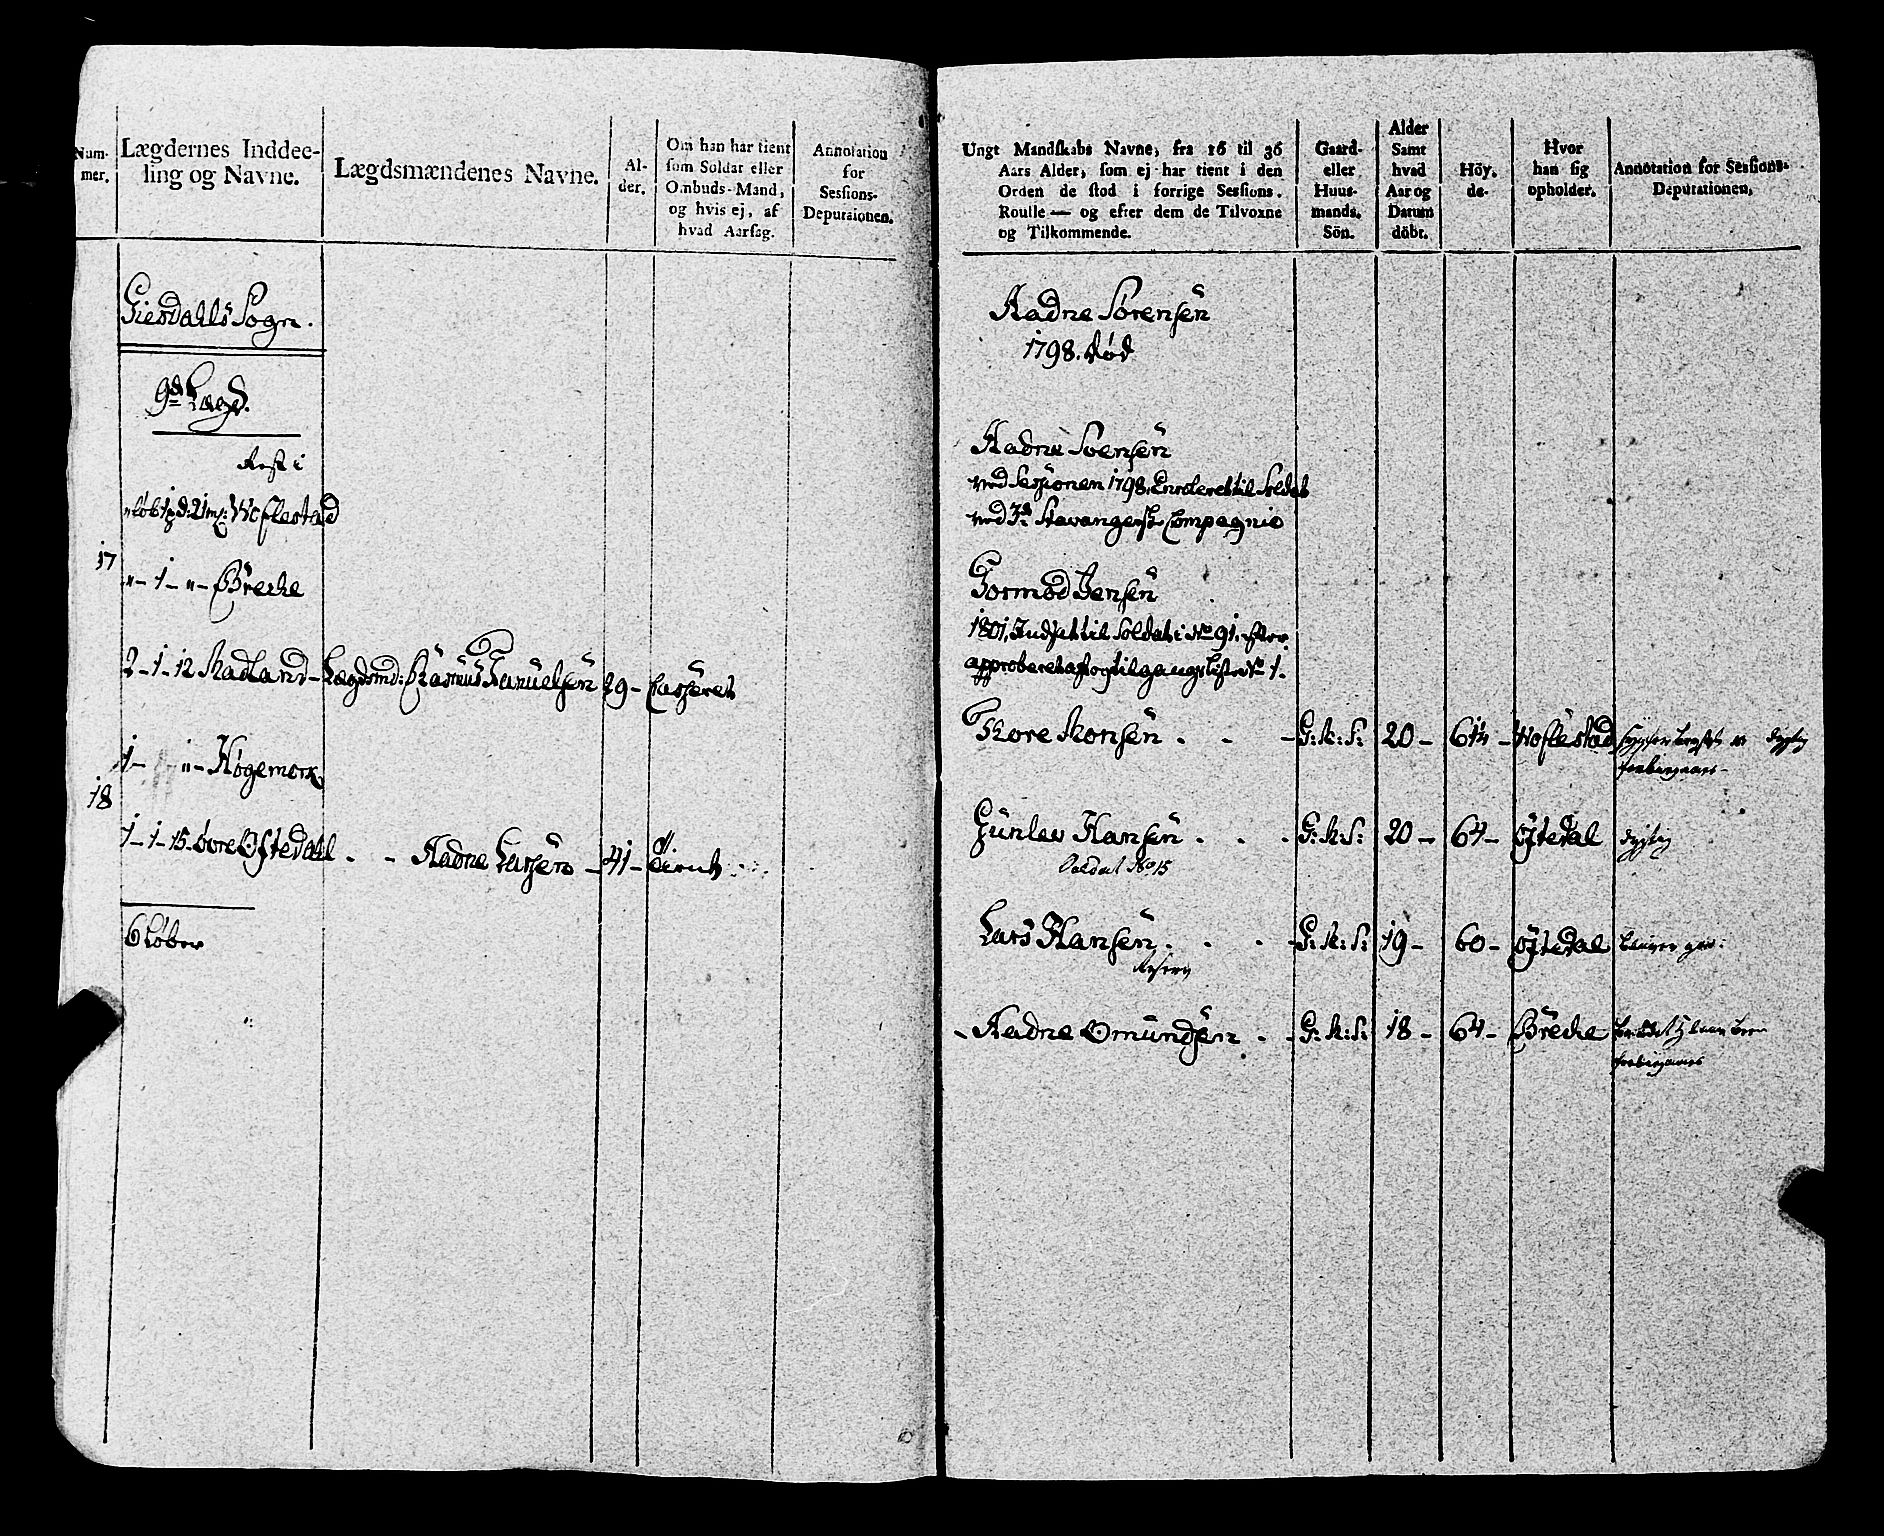 Num-
mer.
Lægdernes Inddee-
ling og Navne.
Lægdsmændenes Navne.
Al-
der.
Om han har tient
som Soldat eller
Ombuds-Mand,
og hvis ej, af
hvad Aarsag.
Annotation
for
Sessions-
Deputationen.
Giesdahls Sogn.
9de Lægd.
Rest i
17
"- 1- "- Brecke
2- 1- 12 Madland - Lægdsmd: Rasmus Samuelsen 29- Casseret
1- "- Høgemork
18
1- 1- 15- øvre Østedahl - - Aadne Larsen - 41- tient
6 Løber
Ungt Mandskabs Navne, fra 16 til 36
Aars Alder, som ej har tient i den
Orden de stod i forrige Sessions-
Roulle — og efter dem de Tilvoxne
og Tilkommende.
Gaard-
eller
Huus-
mands.
Sön.
Alder
Samt
hvad
Aar og
Datum
döbt.
Höy.
de.
Hvor
han sig
opholder.
Annotation for Sessions-
Deputationen.
Aadne Sørensen
1798. død
Aadne Soensen
ved Sessionen 1798. Enroleret til Soldat
ved 3de Stavangerske Compagnie
Gormod Jensen
1801. Indsat til Soldat i No 91. efter
approberet afog tilgangs Liste No 1.
Thore Monsen . - - G: M: S: 20- 61¼- Woflestad
Gunlev Hansen . . . G: M: S: 20- 64- Østedal dygtig
Soldat No 15
Lars Hansen . . . G: M: S: 19- 60- Østedal
Reserv
- Aadne Omundsen - - G: M: S: 18- 64- Brecke
forbigaaes